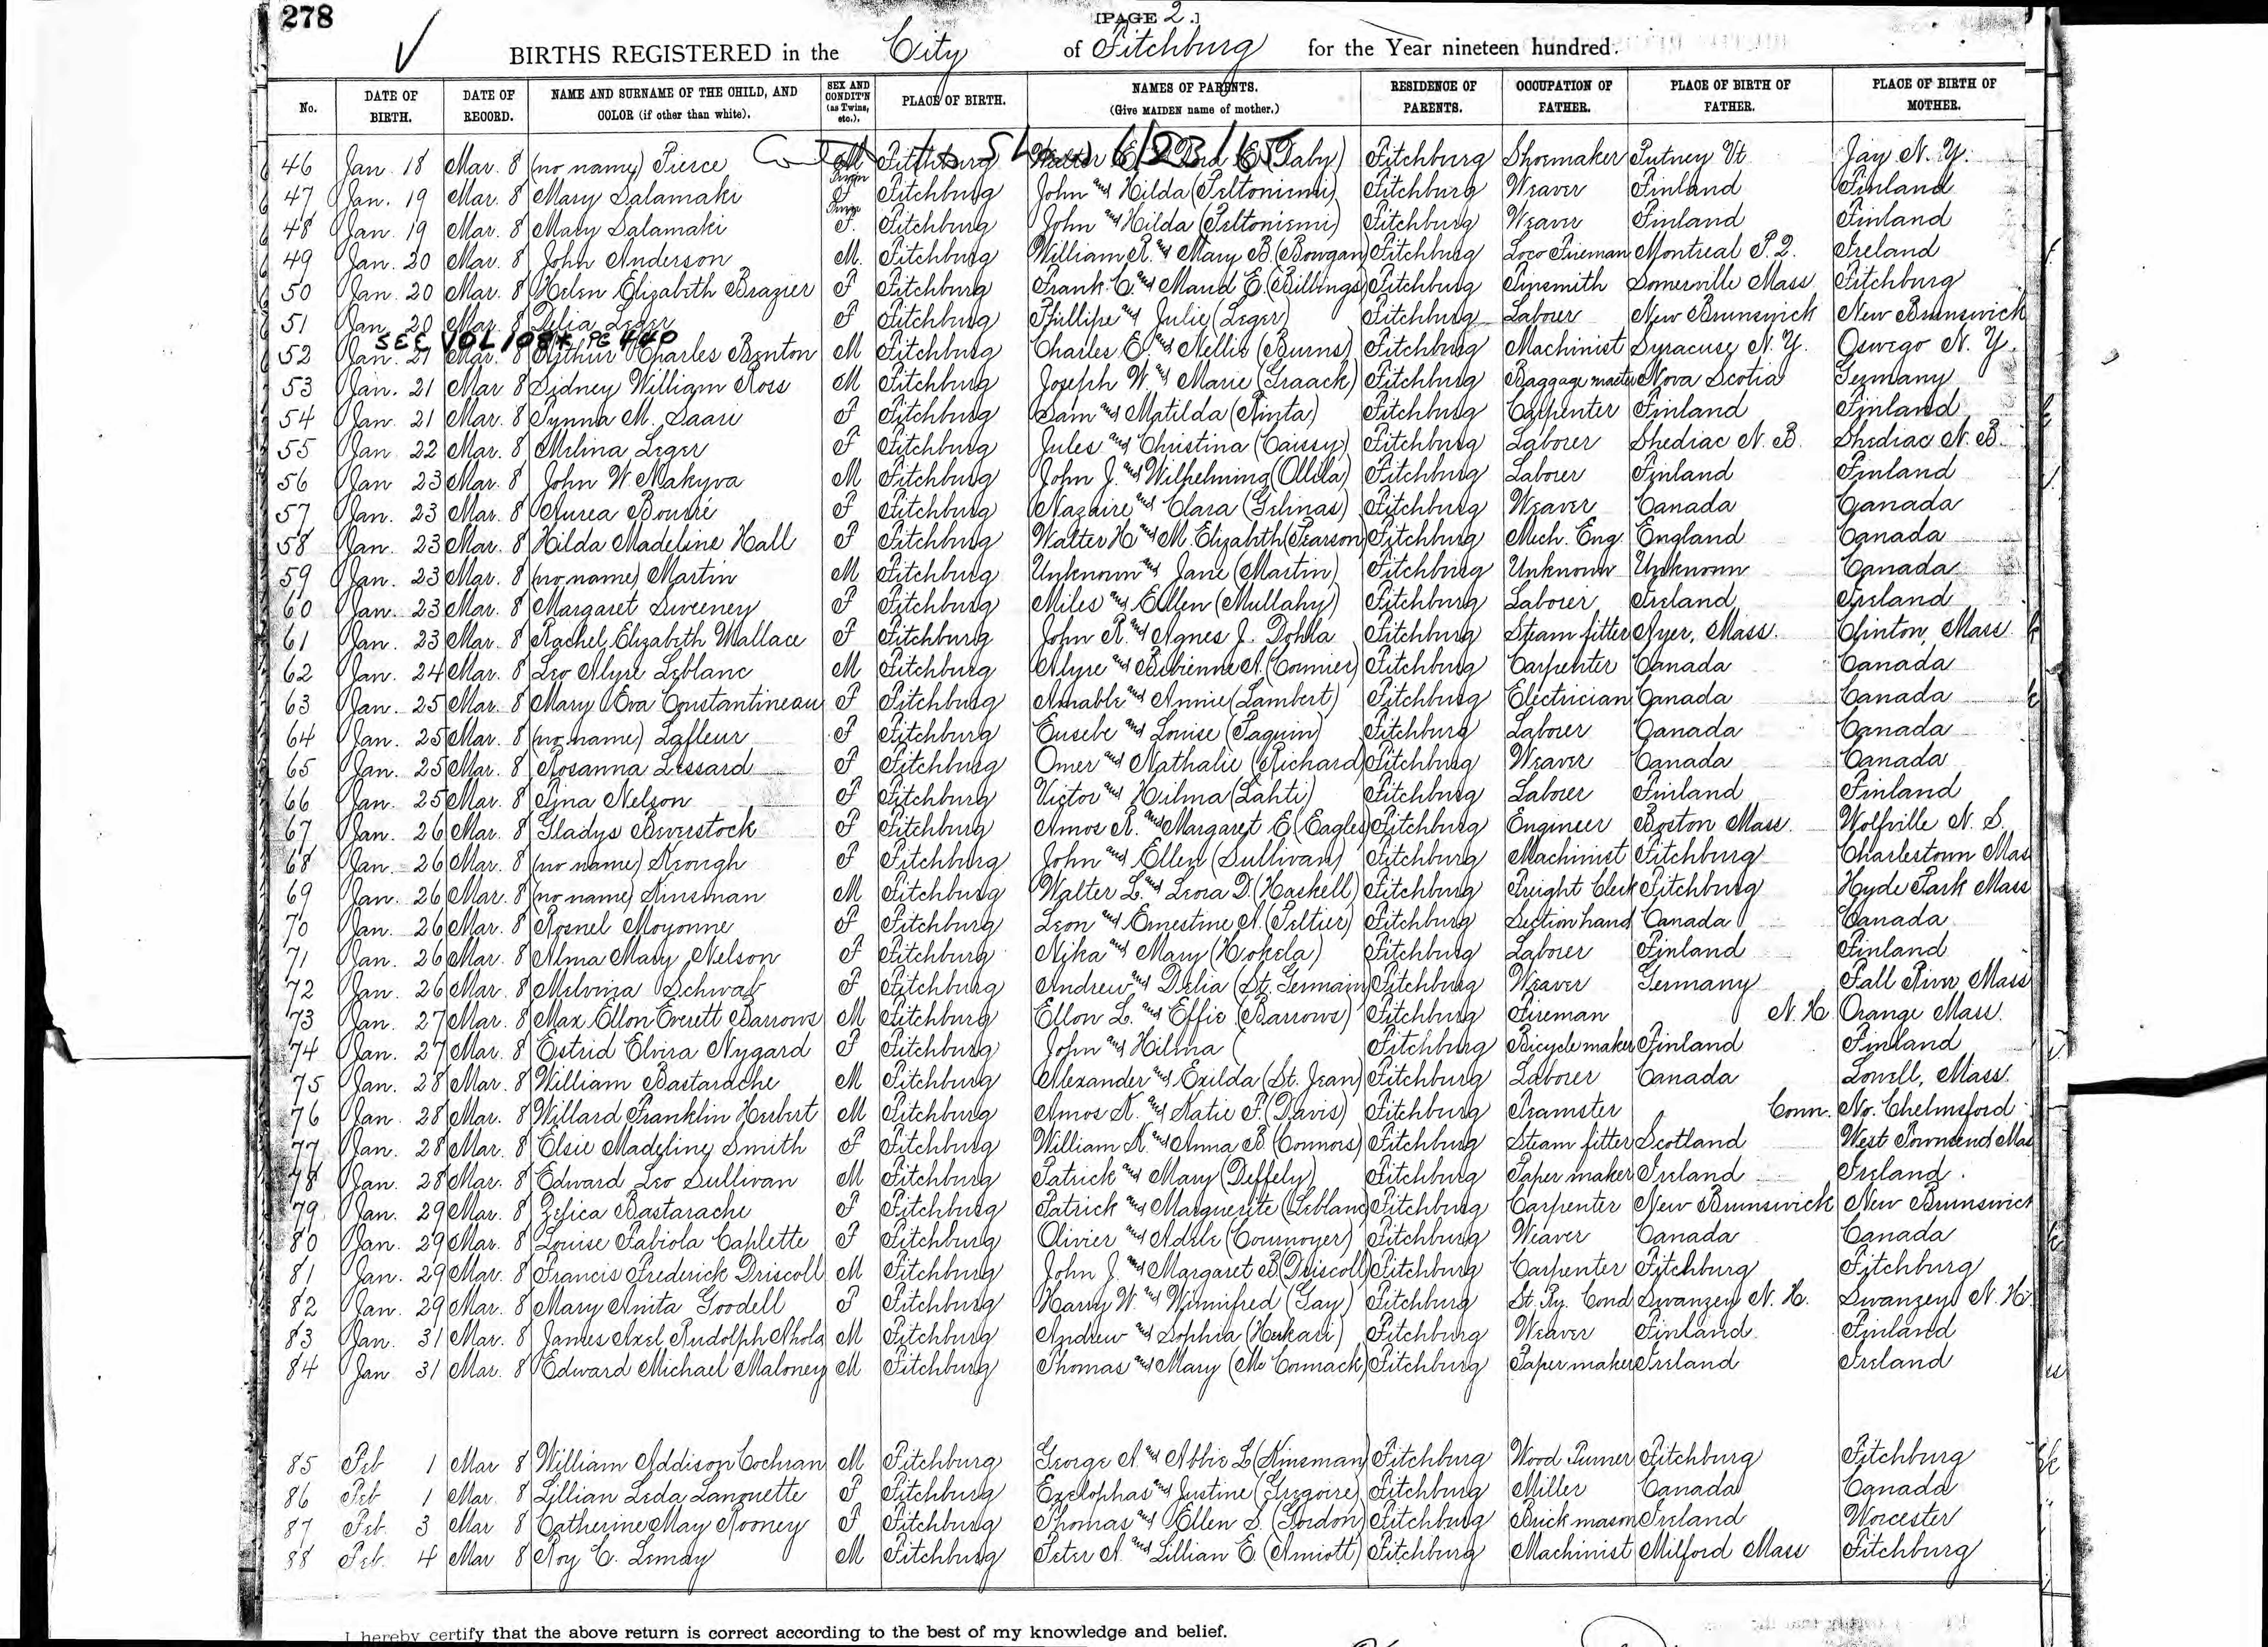 278
[PAGE 2.]
BIRTHS REGISTERED in the City of Fitchburg for the Year nineteen hundred.
No. DATE OF BIRTH. DATE OF RECORD. NAME AND SURNAME OF THE CHILD, AND COLOR (if other than white). SEX AND CONDIT'N (as Twins, etc.). PLACE OF BIRTH. NAMES OF PARENTS. (Give MAIDEN name of mother.) RESIDENCE OF PARENTS. OCCUPATION OF FATHER. PLACE OF BIRTH OF FATHER. PLACE OF BIRTH OF MOTHER.
46 Jan. 18 Mar. 8 (no name) Pierce M Fitchburg Walter E. (Daby) Fitchburg Shoemaker Putney Vt Jay N. Y.
47 Jan. 19 Mar. 8 Mary Salamaki Twin F Fitchburg John and Hilda (Peltoniemi) Fitchburg Weaver Finland Finland
48 Jan. 19 Mar. 8 Mary Salamaki Twin F. Fitchburg John and Hilda (Peltoniemi) Fitchburg Weaver Finland Finland
49 Jan. 20 Mar. 8 John Anderson M. Fitchburg William R. and Mary B. (Bowgan) Fitchburg Loco Fireman Montreal P. Q. Ireland
50 Jan. 20 Mar. 8 Helen Elizabeth Brazier F Fitchburg Frank C. and Maud E. (Billings) Fitchburg Tinsmith Somerville Mass Fitchburg
51 Jan. 20 Mar. 8 Delia Leger F Fitchburg Phillipe and Julie (Leger) Fitchburg Laborer New Brunswick New Brunswick
SEE VOL 1084 PG 440
52 Jan. 21 Mar. 8 Arthur Charles Benton M Fitchburg Charles E. and Nellie (Burns) Fitchburg Machinist Syracuse N. Y. Oswego N. Y.
53 Jan. 21 Mar 8 Sidney William Ross M Fitchburg Joseph W. and Marie (Graack) Fitchburg Baggage master Nova Scotia Germany
54 Jan. 21 Mar. 8 Synna M. Saari F Fitchburg Sam and Matilda (Rinta) Fitchburg Carpenter Finland Finland
55 Jan 22 Mar. 8 Melina Leger F Fitchburg Jules and Christina (Caissy) Fitchburg Laborer Shediac N. B. Shediac N. B.
56 Jan 23 Mar. 8 John W Makyva M Fitchburg John J. and Wilhelmina (Ollila) Fitchburg Laborer Finland Finland
57 Jan. 23 Mar. 8 Aurea Bourré F Fitchburg Nazaire and Clara (Gelinas) Fitchburg Weaver Canada Canada
58 Jan. 23 Mar. 8 Hilda Madeline Hall F Fitchburg Walter H and M. Elizabeth (Pearson) Fitchburg Mech. Eng. England Canada
59 Jan. 23 Mar. 8 (no name) Martin M Fitchburg Unknown and Jane (Martin) Fitchburg Unknown Unknown Canada
60 Jan. 23 Mar. 8 Margaret Sweeney F Fitchburg Miles and Ellen (Mullahy) Fitchburg Laborer Ireland Ireland
61 Jan. 23 Mar. 8 Rachel Elizabeth Wallace F Fitchburg John R. and Agnes J. Dohla Fitchburg Steam fitter Ayer, Mass. Clinton, Mass.
62 Jan. 24 Mar. 8 Leo Alyre Leblanc M Fitchburg Alyre and Bibienne A. (Cormier) Fitchburg Carpenter Canada Canada
63 Jan. 25 Mar. 8 Mary Eva Constantineau F Fitchburg Amable and Annie (Lambert) Fitchburg Electrician Canada Canada
64 Jan. 25 Mar. 8 (no name) Lafleur F Fitchburg Eusebe and Louise (Paquin) Fitchburg Laborer Canada Canada
65 Jan. 25 Mar. 8 Rosanna Lessard F Fitchburg Omer and Nathalie (Richard) Fitchburg Weaver Canada Canada
66 Jan. 25 Mar. 8 Tina Nelson F Fitchburg Victor and Hilma (Lahti) Fitchburg Laborer Finland Finland
67 Jan. 26 Mar. 8 Gladys Beverstock F Fitchburg Amos R. and Margaret E. (Eagles) Fitchburg Engineer Boston Mass. Wolfville N. S.
68 Jan. 26 Mar. 8 (no name) Keough F Fitchburg John and Ellen (Sullivan) Fitchburg Machinist Fitchburg Charlestown Mas
69 Jan. 26 Mar. 8 (no name) Kinsman M Fitchburg Walter L. and Leora D. (Haskell) Fitchburg Freight Clerk Fitchburg Hyde Park Mass
70 Jan. 26 Mar. 8 Rosnel Moyonne F Fitchburg Leon and Ernestine A. (Peltier) Fitchburg Section hand Canada Canada
71 Jan. 26 Mar. 8 Alma Mary Nelson F Fitchburg Nika and Mary (Hokela) Fitchburg Laborer Finland Finland
72 Jan. 26 Mar. 8 Melvina Schwab F Fitchburg Andrew and Delia (St. Germain) Fitchburg Weaver Germany Fall River Mass
73 Jan. 27 Mar. 8 Max Ellon Everett Barrows M Fitchburg Ellon L. and Effie (Barrows) Fitchburg Fireman N. H. Orange Mass.
74 Jan. 27 Mar. 8 Estrid Elvira Nygard F Fitchburg John and Hilma ( Fitchburg Bicycle maker Finland Finland
75 Jan. 28 Mar. 8 William Bastarache M Fitchburg Alexander and Exilda (St. Jean) Fitchburg Laborer Canada Lowell, Mass.
76 Jan. 28 Mar. 8 Willard Franklin Herbert M Fitchburg Amos K. and Katie F. (Davis) Fitchburg Teamster Conn. No. Chelmsford
77 Jan. 28 Mar. 8 Elsie Madeline Smith F Fitchburg William K. and Anna B (Connors) Fitchburg Steam fitter Scotland West Townsend Mas
78 Jan. 28 Mar. 8 Edward Leo Sullivan M Fitchburg Patrick and Mary (Deffely) Fitchburg Paper maker Ireland Ireland.
79 Jan. 29 Mar. 8 Zefica Bastarache F Fitchburg Patrick and Marguerite (Leblanc) Fitchburg Carpenter New Brunswick New Brunswick
80 Jan. 29 Mar. 8 Louise Fabiola Caplette F Fitchburg Olivier and Adele (Cournoyer) Fitchburg Weaver Canada Canada
81 Jan. 29 Mar. 8 Francis Frederick Driscoll M Fitchburg John J. and Margaret B (Driscoll) Fitchburg Carpenter Fitchburg Fitchburg
82 Jan. 29 Mar. 8 Mary Anita Goodell F Fitchburg Harry W. and Winnifred (Gay) Fitchburg St. Ry. Cond Swanzey N. H. Swanzey N. H.
83 Jan. 31 Mar. 8 James Axel Rudolph Ahola M Fitchburg Andrew and Sophia (Herkari) Fitchburg Weaver Finland Finland
84 Jan 31 Mar. 8 Edward Michael Maloney M Fitchburg Thomas and Mary (Mc Cormack) Fitchburg Paper maker Ireland Ireland
85 Feb 1 Mar 8 William Addison Cochran M Fitchburg George A. and Abbie L (Kinsman) Fitchburg Wood Turner Fitchburg Fitchburg
86 Feb 1 Mar. 8 Lillian Leda Lanouette F Fitchburg Exclophas and Justine (Gregoire) Fitchburg Miller Canada Canada
87 Feb. 3 Mar 8 Catherine May Rooney F Fitchburg Thomas and Ellen S. (Gordon) Fitchburg Brick mason Ireland Worcester
88 Feb. 4 Mar 8 Roy C. Lemay M Fitchburg Peter A. and Lillian E. (Amiott) Fitchburg Machinist Milford Mass Fitchburg
I hereby certify that the above return is correct according to the best of my knowledge and belief.